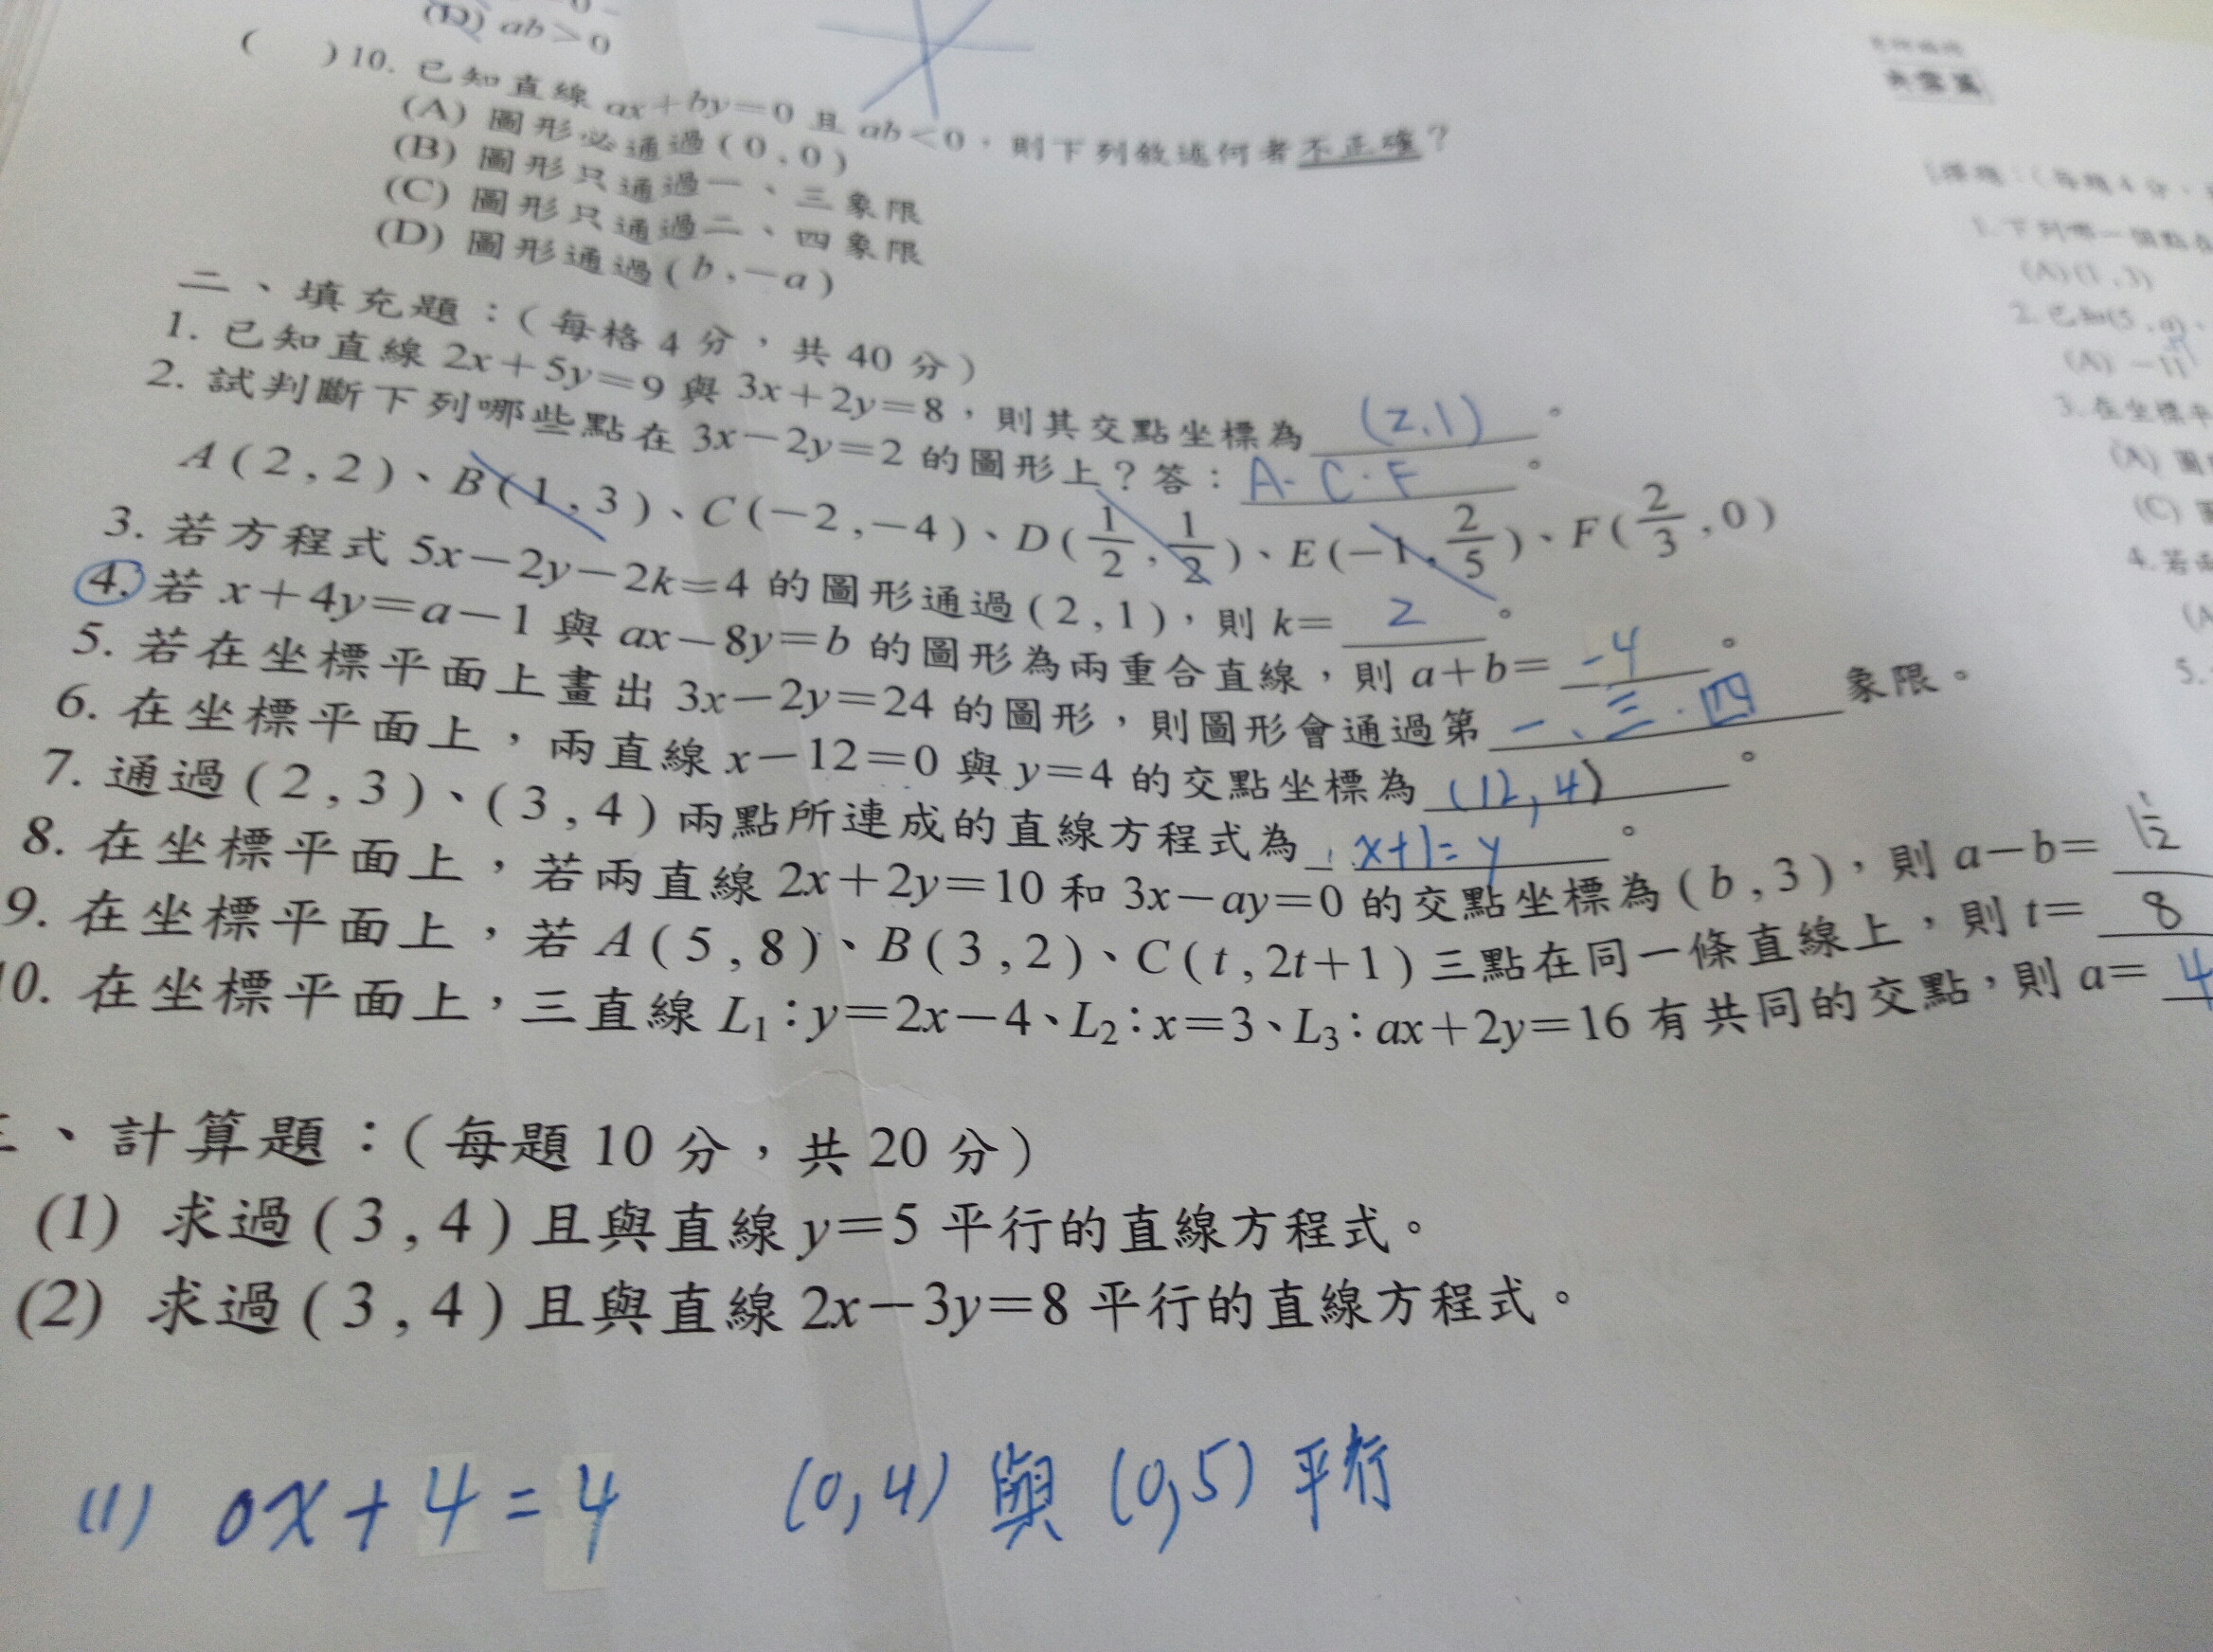 (D) ab>0
(　) 10. 已知直線 ax+by=0 且 ab<0，則下列敘述何者不正確？
(A) 圖形必通過(0,0)
(B) 圖形只通過一、三象限
(C) 圖形只通過二、四象限
(D) 圖形通過(b,-a)
二、填充題：(每格 4 分，共 40 分)
1. 已知直線 2x+5y=9 與 3x+2y=8，則其交點坐標為 (2,1) 。
2. 試判斷下列哪些點在 3x-2y=2 的圖形上？答：A.C.F 。
A(2,2)、B(1,3)、C(-2,-4)、D(1/2,1/2)、E(-1,2/5)、F(2/3,0)
3. 若方程式 5x-2y-2k=4 的圖形通過(2,1)，則 k= 2 。
4. 若 x+4y=a-1 與 ax-8y=b 的圖形為兩重合直線，則 a+b= -4 。
5. 若在坐標平面上畫出 3x-2y=24 的圖形，則圖形會通過第 一、三.四 象限。
6. 在坐標平面上，兩直線 x-12=0 與 y=4 的交點坐標為 (12,4) 。
7. 通過(2,3)、(3,4)兩點所連成的直線方程式為 x+1=y 。
8. 在坐標平面上，若兩直線 2x+2y=10 和 3x-ay=0 的交點坐標為(b,3)，則 a-b=
9. 在坐標平面上，若 A(5,8)、B(3,2)、C(t,2t+1)三點在同一條直線上，則 t= 8
10. 在坐標平面上，三直線 L₁：y=2x-4、L₂：x=3、L₃：ax+2y=16 有共同的交點，則 a= 4
三、計算題：(每題 10 分，共 20 分)
(1) 求過(3,4)且與直線 y=5 平行的直線方程式。
(2) 求過(3,4)且與直線 2x-3y=8 平行的直線方程式。
(1) 0x+4=4 (0,4) 與 (0,5) 平行
1.下列哪一個點在
(A)(1,3)
(A) -11
3.在坐標平
(A) 圖
(C)
4.若
(A
5.